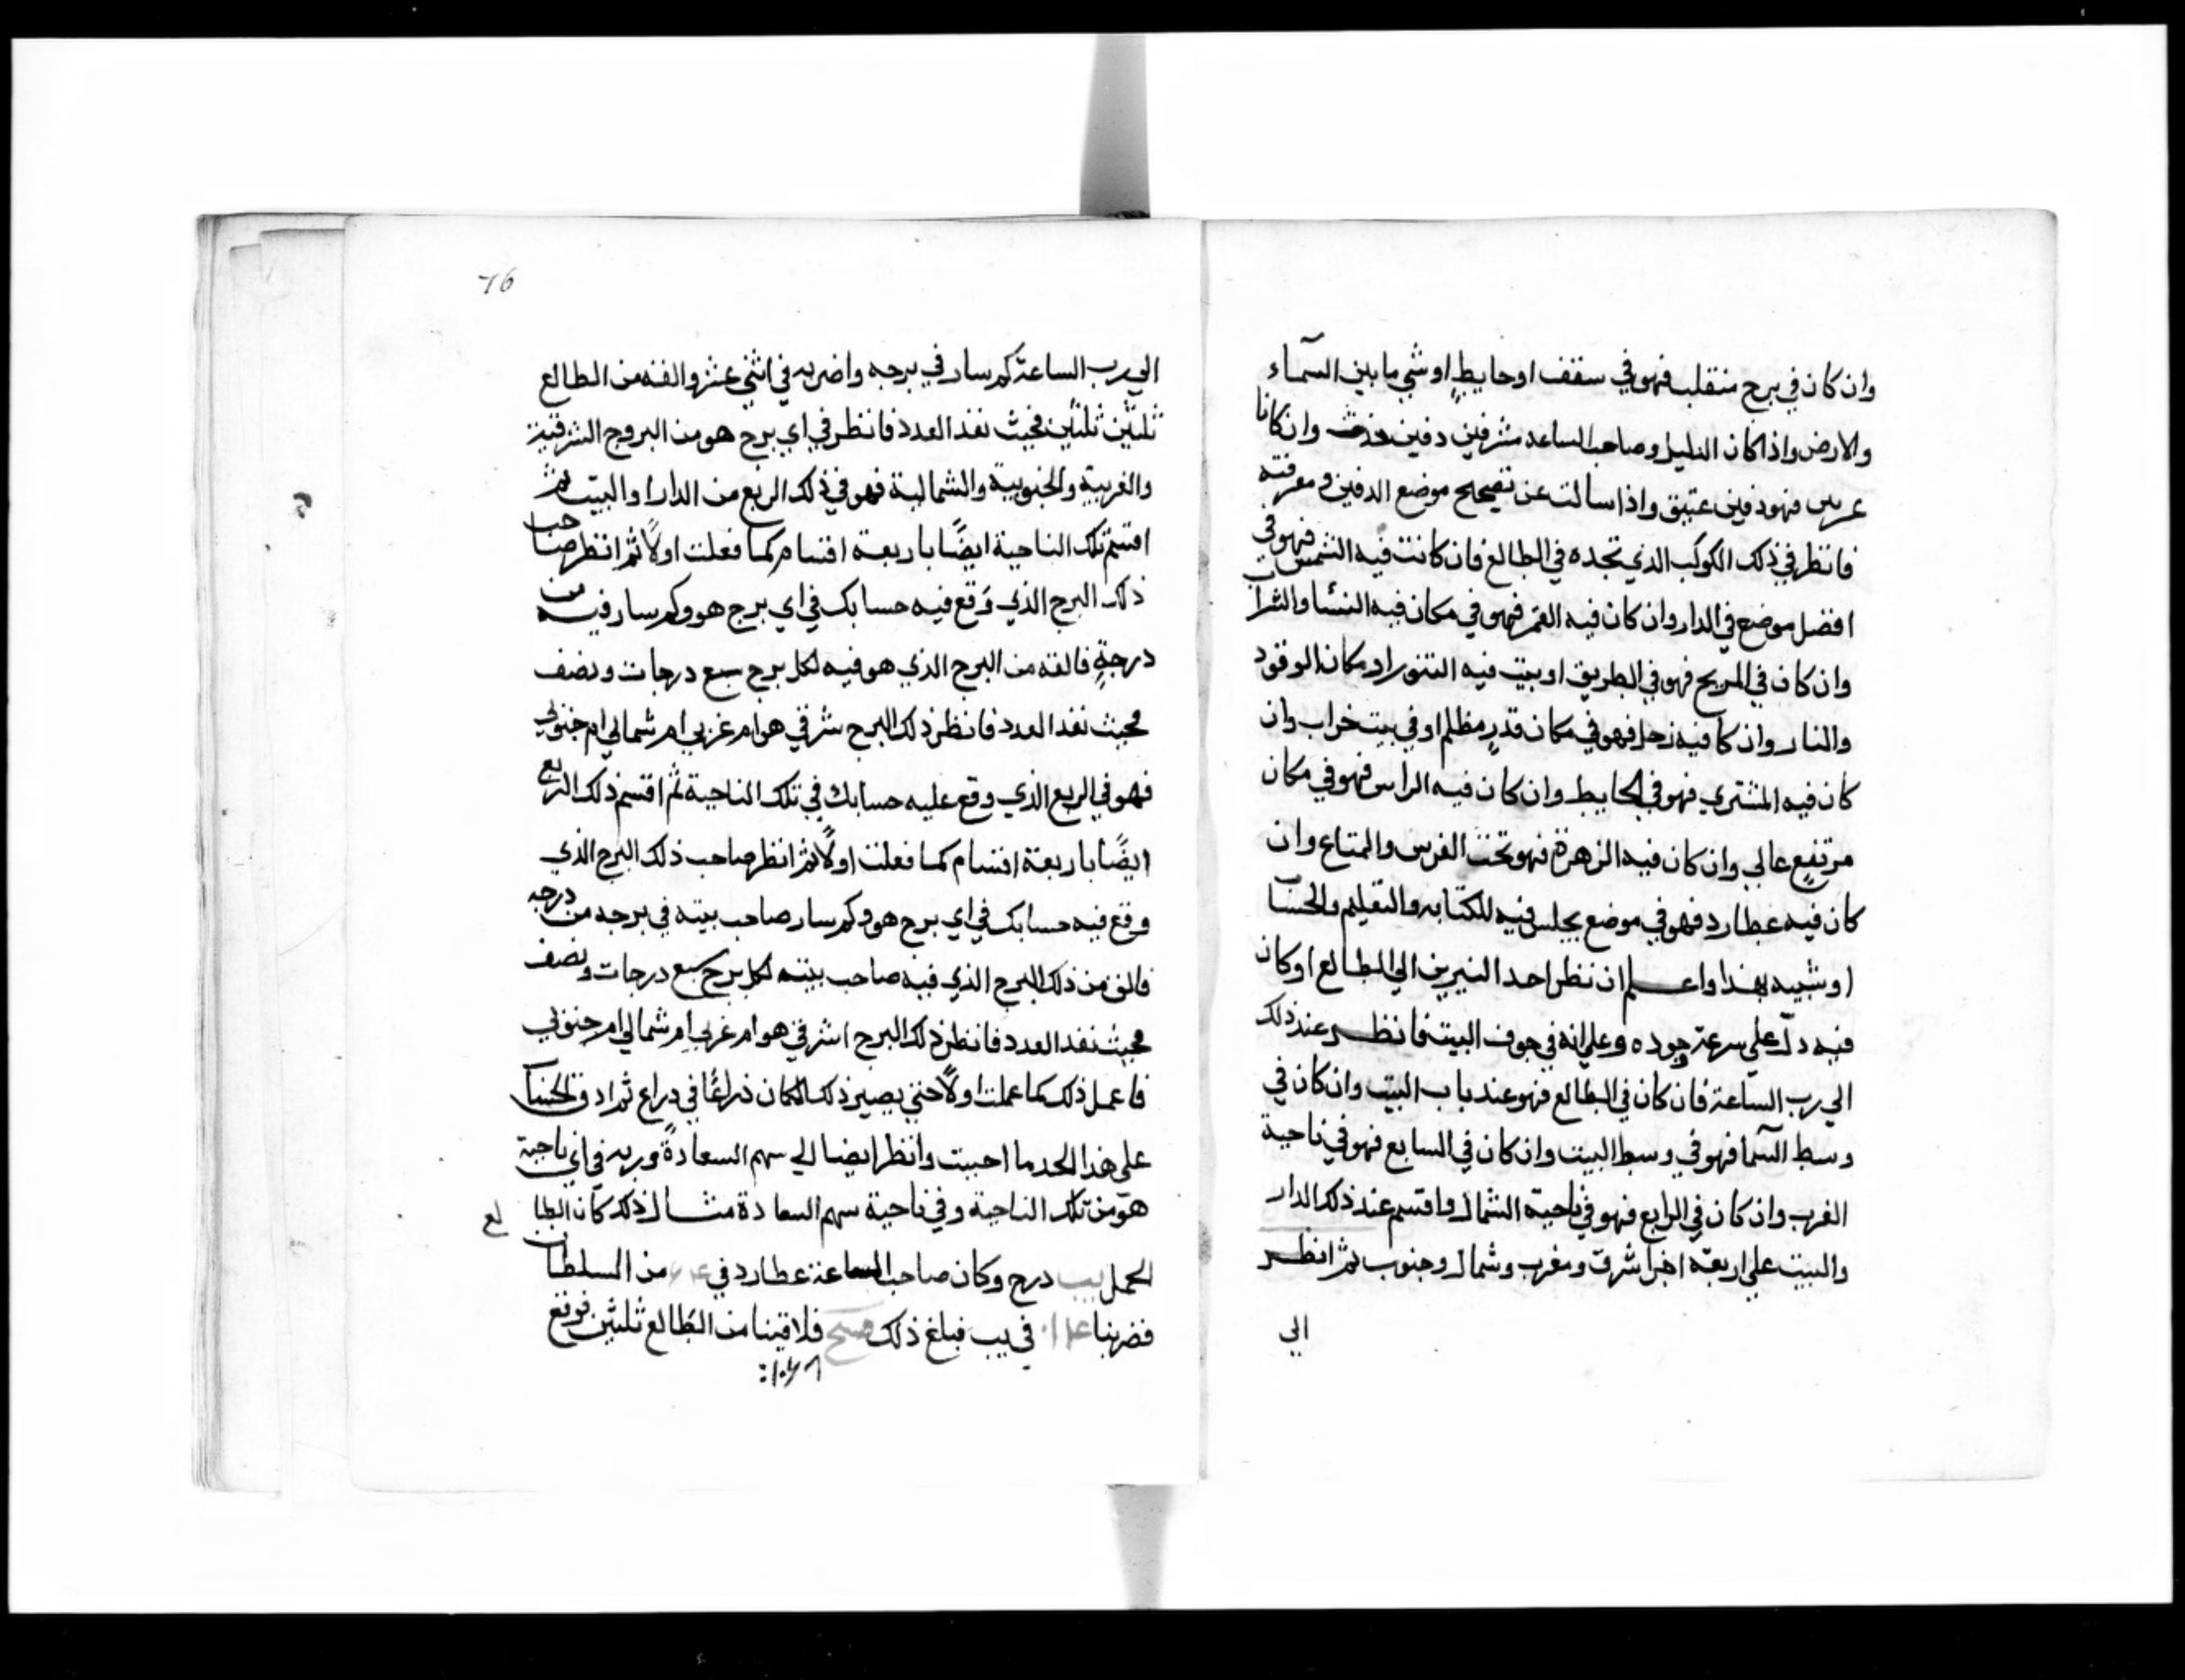 وان كان في برج منقلب فهو في سقف او حايطٍ او شي ما بين السمآء
والارض واذا كان الدليل وصاحب الساعه شرقين دفين حدث وان كانا
غربين فهو دفين عتيق واذا سالت عن تصحيح موضع الدفين ومعرفته
فانظر في ذلك الكوكب الذي تجده في الطالع فان كانت فيه الشمس فهو في
افضل موضع في الدار وان كان فيه القمر فهو في مكان فيه النسا والشراب
وان كان في المريخ فهو في الطريق او بيت فيه التنور او مكان الوقود
والنار وان كا فيه زحل فهو في مكان قذرٍ مظلم او في بيت خراب وان
كان فيه المشتري فهو في الحايط وان كان فيه الراس فهو في مكان
مرتفعٍ عالي وان كان فيه الزهرة فهو تحت الفرش والمتاع وان
كان فيه عطارد فهو في موضع يجلس فيه للكتابه والتعليم والحساب
او شبيه بهذا واعلم ان نظر احد النيرين الي الطالع او كان
فيه دلّ علي سرعة وجوده وعلي انه في جوف البيت فانظر عند ذلك
الي رب الساعة فان كان في الطالع فهو عند باب البيت وان كان في
وسط السما فهو في وسط البيت وان كان في السابع فهو في ناحية
الغرب وان كان في الرابع فهو في ناحية الشمال واقتسم عند ذلك الدار
والبيت علي اربعة اجزا شرق ومغرب وشمال وجنوب ثم انظر
الي
76
الي رب الساعة كم سار في برجه واضربه في اثني عشر والقه من الطالع
ثلثين ثلثين فحيث نفد العدد فانظر في اي برج هو من البروج الشرقية
والغربية والجنوبية والشمالية فهو في ذلك الربع من الدار او البيت ثم
اقتسم تلك الناحية ايضًا باربعة اقتسام كما فعلت اولًا ثم انظر صاحب
ذلك البرج الذي وقع فيه حسابك في اي برج هو وكم سار فيه من
درجةٍ فالقه من البرج الذي هو فيه لكل برج سبع درجات ونصف
فحيث نفد العدد فانظر ذلك البرج شرقي هو ام غربي ام شمالي ام جنوبي
فهو في الربع الذي وقع عليه حسابك في تلك الناحية ثم اقتسم ذلك الربع
ايضًا باربعة اقتسام كما فعلت اولًا ثم انظر صاحب ذلك البرج الذي
وقع فيه حسابك في اي برج هو وكم سار صاحب بيته في برجه من درجه
فالق من ذلك البرج الذي فيه صاحب بيته لكل برج سبع درجات ونصف
فحيث نفد العدد فانظر ذلك البرج اشرقي هو ام غربي ام شمالي ام جنوبي
فاعمل ذلك كما عملت اولًا حتي يصير ذلك المكان ذراعًا في دراع ثم ادق الحساب
علي هذا الحد ما احببت وانظر ايضا الي سهم السعادة وربه في اي ناحية
هو من تلك الناحية وفي ناحية سهم السعادة مثال ذلك كان الطالع
الحمل يب درج وكان صاحب الساعة عطارد في من السلطان
فضربنا في يب فبلغ ذلك فلاقينا من الطالع ثلثين فوقع